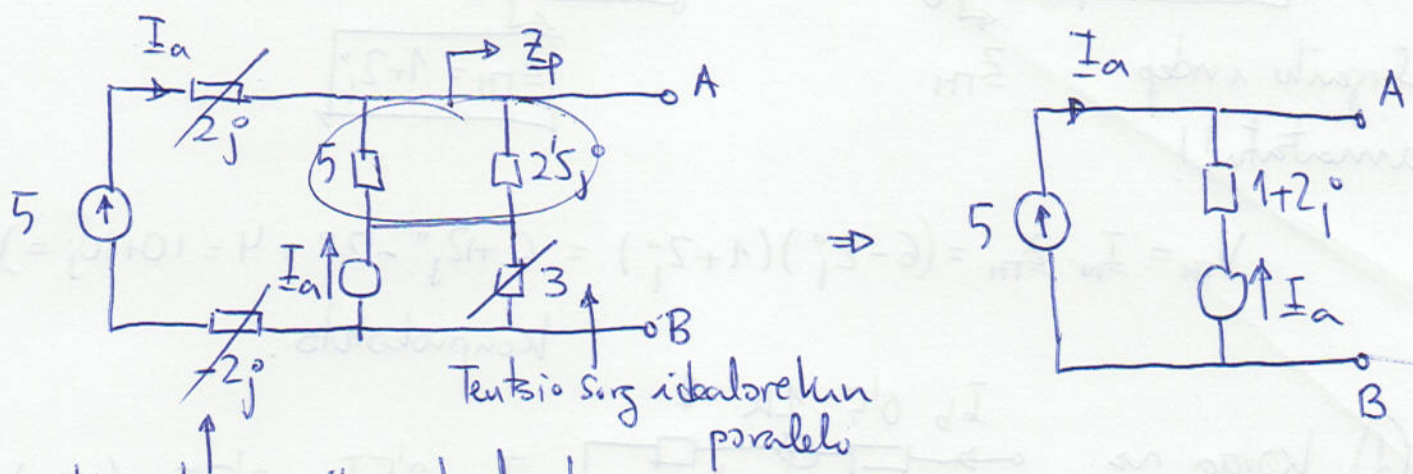 Ia
Zp
A
2j
5
5
2'5j
Ia
3
-2j
B
Tentsio sorg idealarekin
paralelo
⇒
Ia
A
5
1+2j
Ia
B